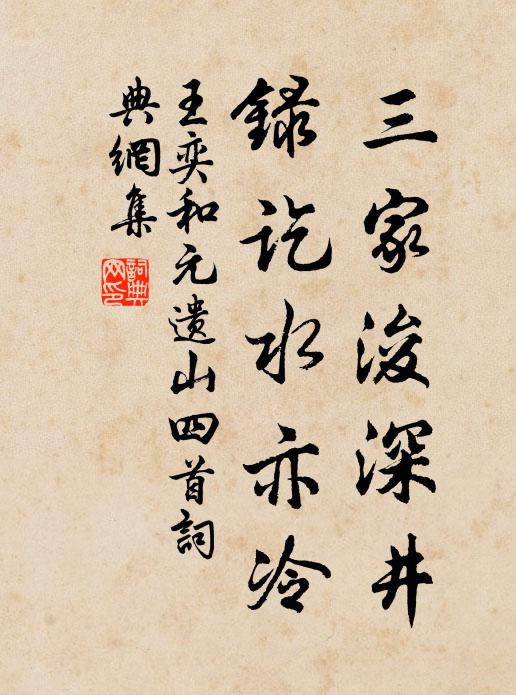 三家浚深井
錄訖水亦冷
王奕和元遺山四首詞
典網集
詞典
网印